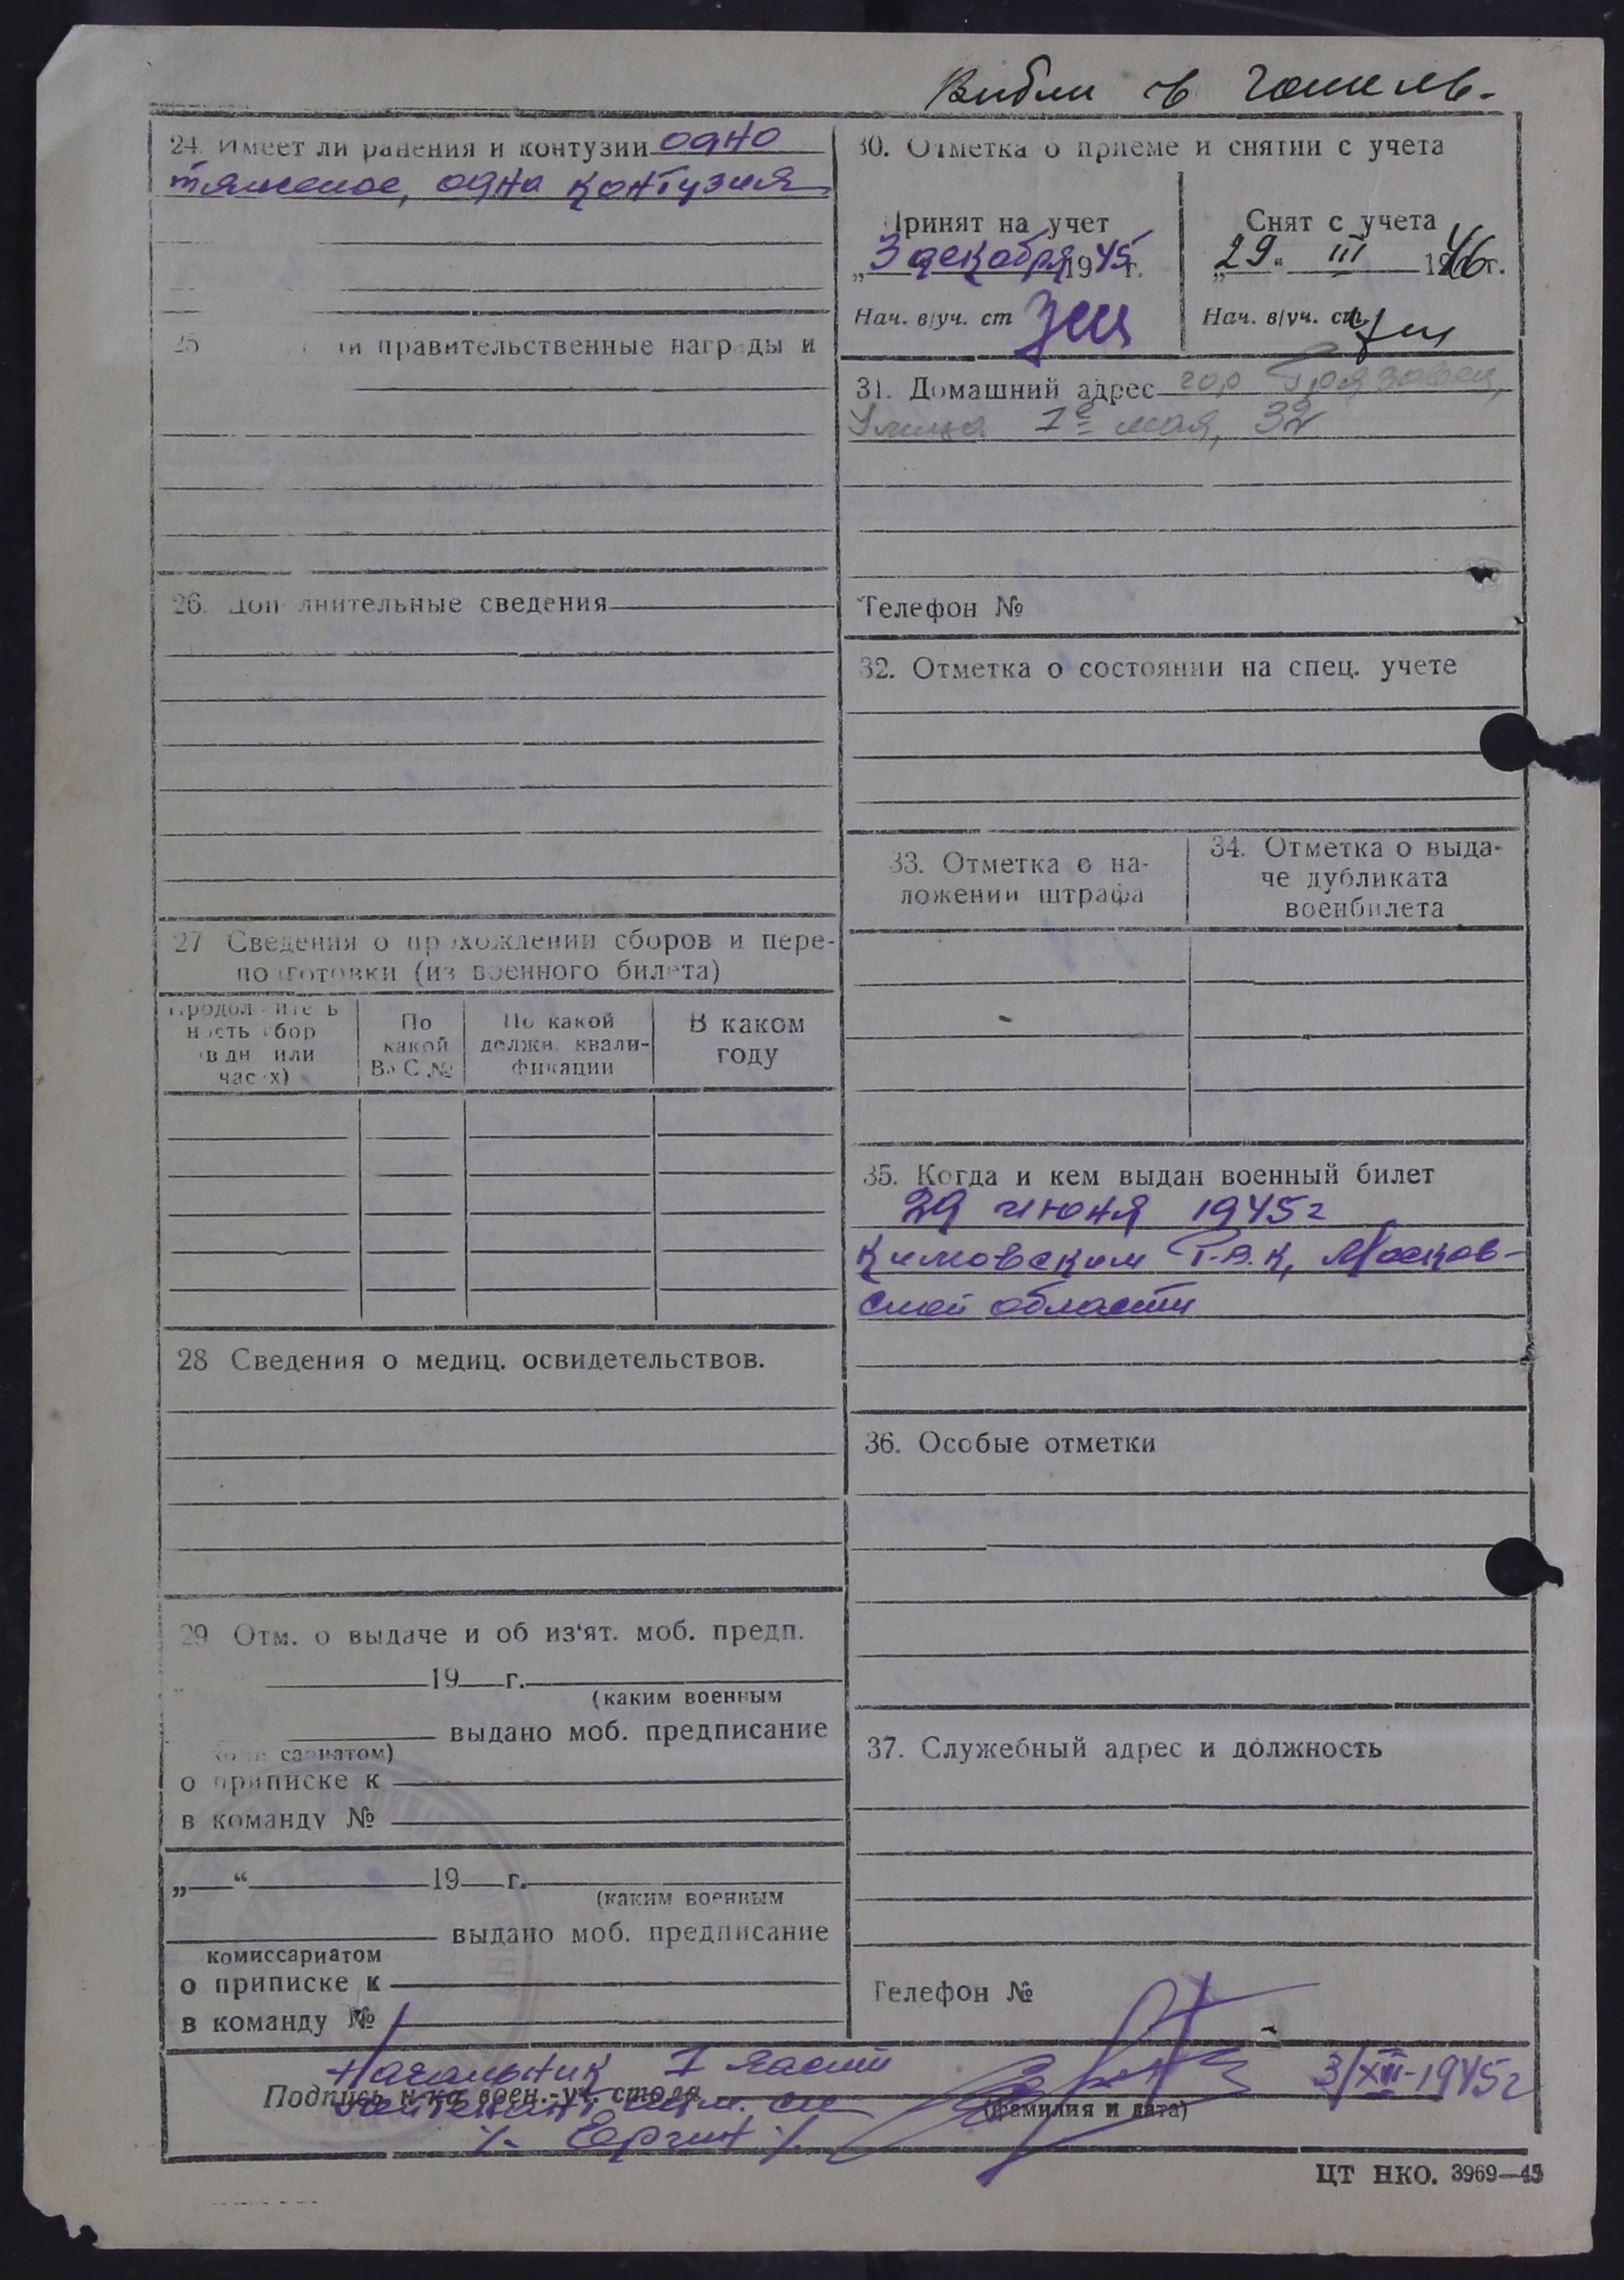 в
24. Имеет ли ранения и контузии одно
тяжелое, одна контузия
25 ли правительственные награды и
26. Дополнительные сведения
27 Сведения о прохождении сборов и пере-
подготовки (из военного билета)
Продолжитель
ность сбор
в дн или
часах)
По
какой
ВУС №
По какой
должн. квали-
фикации
В каком
году
28 Сведения о медиц. освидетельствов.
29 Отм. о выдаче и об из'ят. моб. предп.
19 г.
(каким военным
выдано моб. предписание
комиссариатом)
о приписке к
в команду №
„ “ 19 г.
(каким военным
выдано моб. предписание
комиссариатом
о приписке к
в команду №
30. Отметка о приеме и снятии с учета
Принят на учет
„3 декабря 1945 г.
Нач. в/уч. ст
Снят с учета
„29“ III 1946 г.
Нач. в/уч. ст.
31. Домашний адрес гор Грязовец,
Улица 1е мая, 32
Телефон №
32. Отметка о состоянии на спец. учете
33. Отметка о на-
ложении штрафа
34. Отметка о выда-
че дубликата
военбилета
35. Когда и кем выдан военный билет
29 июня 1945 г
Кимовским Р.В.К, Москов-
ской области
36. Особые отметки
37. Служебный адрес и должность
Телефон №
Начальник I части
Подпись н-ка воен.-уч. стола
лейтенант
(фамилия и дата)
3/XII-1945 г
/- Ергин /
ЦТ НКО. 3969—45